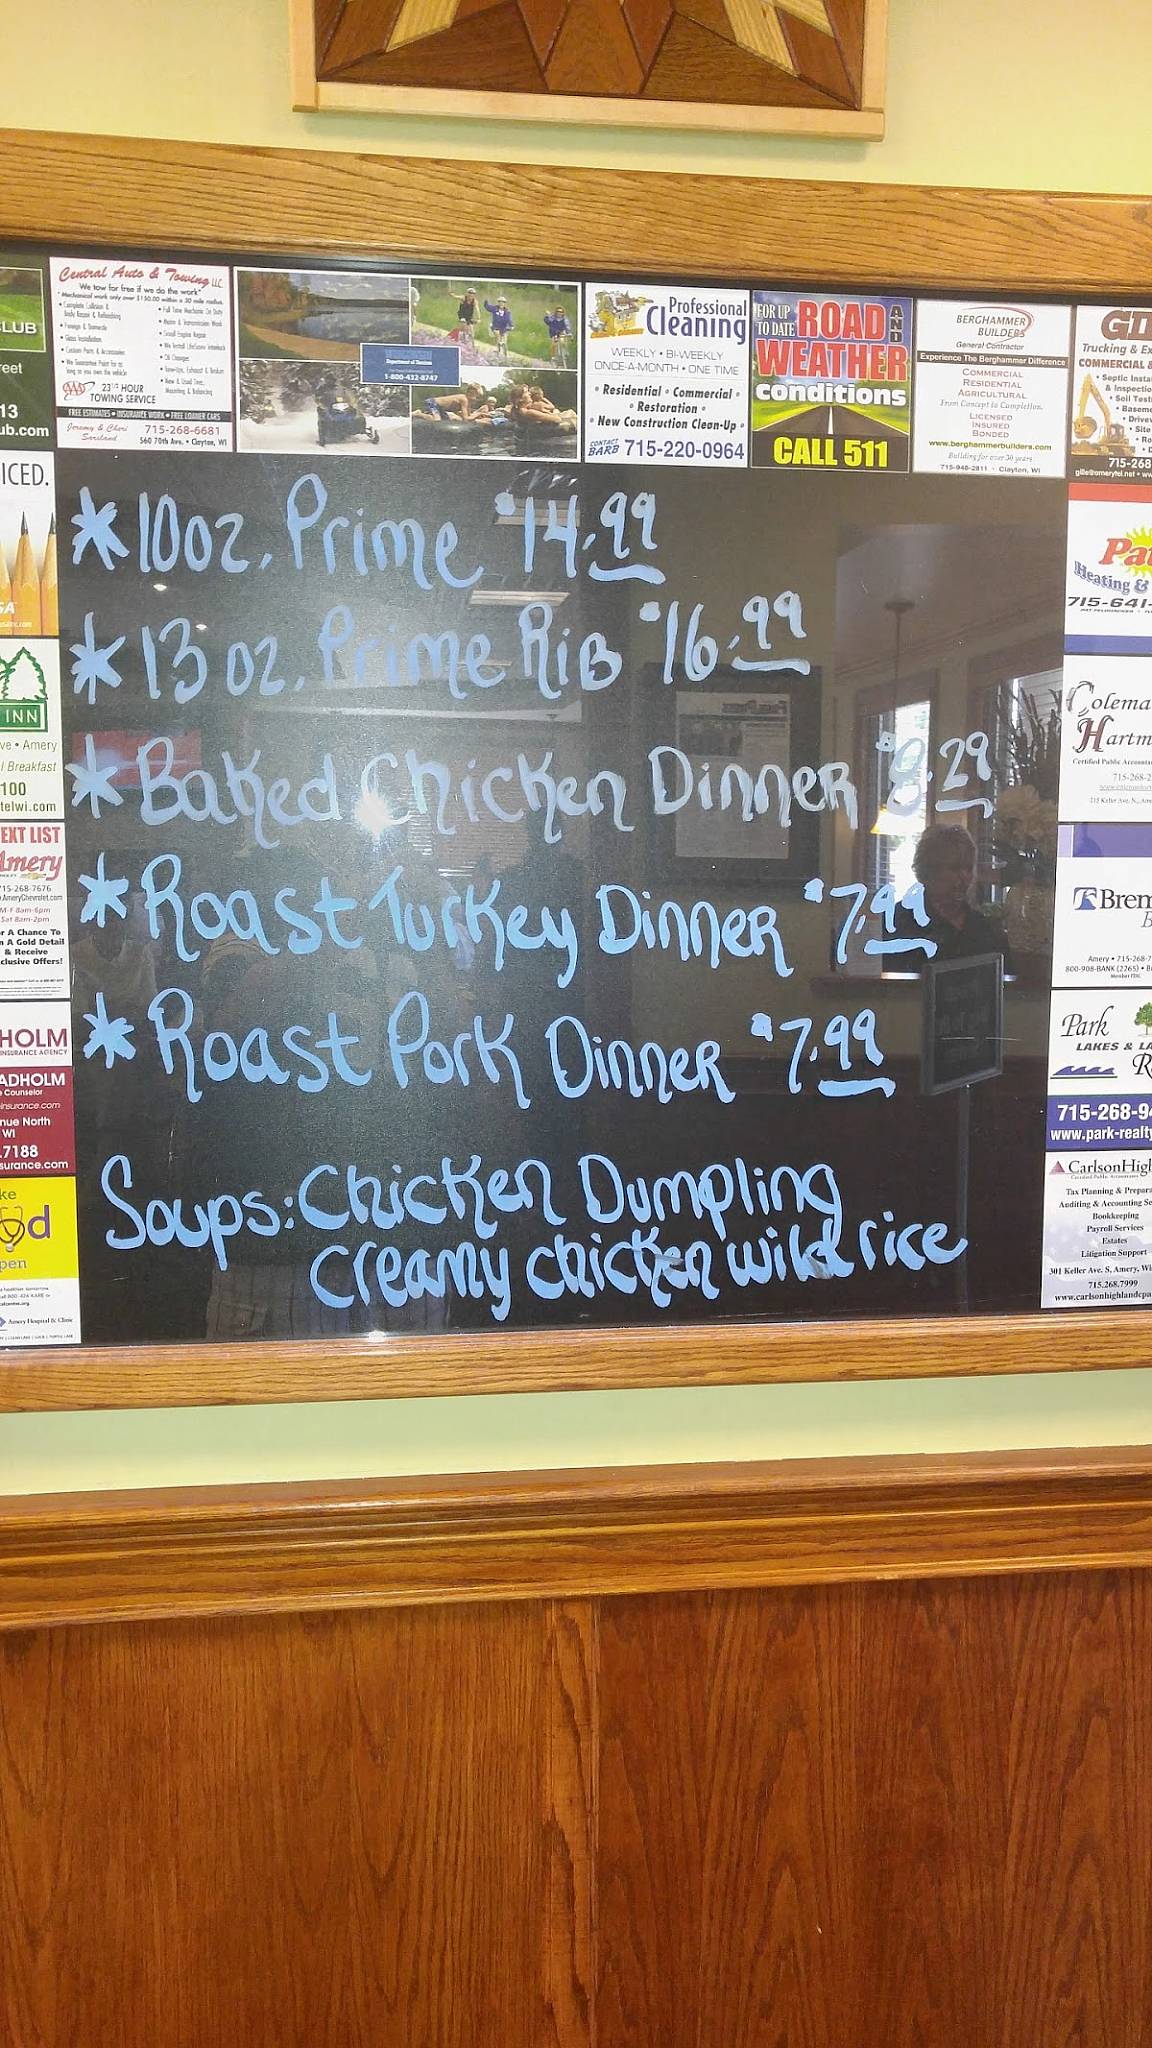 Central Auto & Towing LLC
"We tow for free if we do the work"
23 1/2 HOUR
TOWING SERVICE
FREE ESTIMATES • INSURANCE WORK • FREE LOANER CARS
Jeremy & Cheri
715-268-6681
560 70th Ave. • Clayton, WI
1-800-432-8747
Professional
Cleaning
WEEKLY • BI-WEEKLY
ONCE-A-MONTH • ONE TIME
• Residential • Commercial •
• Restoration •
• New Construction Clean-Up •
CONTACT
BARB 715-220-0964
FOR UP
TO DATE ROAD AND
WEATHER
conditions
CALL 511
BERGHAMMER
BUILDERS
General Contractor
Experience The Berghammer Difference
COMMERCIAL
RESIDENTIAL
AGRICULTURAL
From Concept to Completion.
LICENSED
INSURED
BONDED
www.berghammerbuilders.com
Building for over 30 years
715-948-2811 • Clayton, WI
Trucking & Ex
COMMERCIAL &
• Septic Insta
& Inspectio
• Soil Test
715-268
CLUB
reet
13
ub.com
ICED.
INN
ve • Amery
l Breakfast
100
telwi.com
EXT LIST
Amery
715-268-7676
M-F 8am-6pm
Sat 8am-2pm
r A Chance To
n A Gold Detail
& Receive
clusive Offers!
HOLM
INSURANCE AGENCY
ADHOLM
Counselor
einsurance.com
nue North
WI
.7188
surance.com
ke
d
pen
Amery Hospital & Clinic
*10oz. Prime $14.99
*13 oz. Prime Rib $16.99
*Baked Chicken Dinner $8.29
*Roast Turkey Dinner $7.99
*Roast Pork Dinner $7.99
Soups: Chicken Dumpling
creamy chicken wild rice
Pat
Heating &
715-641-
Colema
Hartm
Certified Public Accountan
715-268-2
Brem
B
Amery • 715-268-7
800-908-BANK (2265) • B
Member FDIC
Park
LAKES & LA
R
715-268-94
www.park-realty
CarlsonHigh
Tax Planning & Prepara
Auditing & Accounting Se
Bookkeeping
Payroll Services
Estates
Litigation Support
301 Keller Ave. S, Amery, Wi
715.268.7999
www.carlsonhighlandcpa